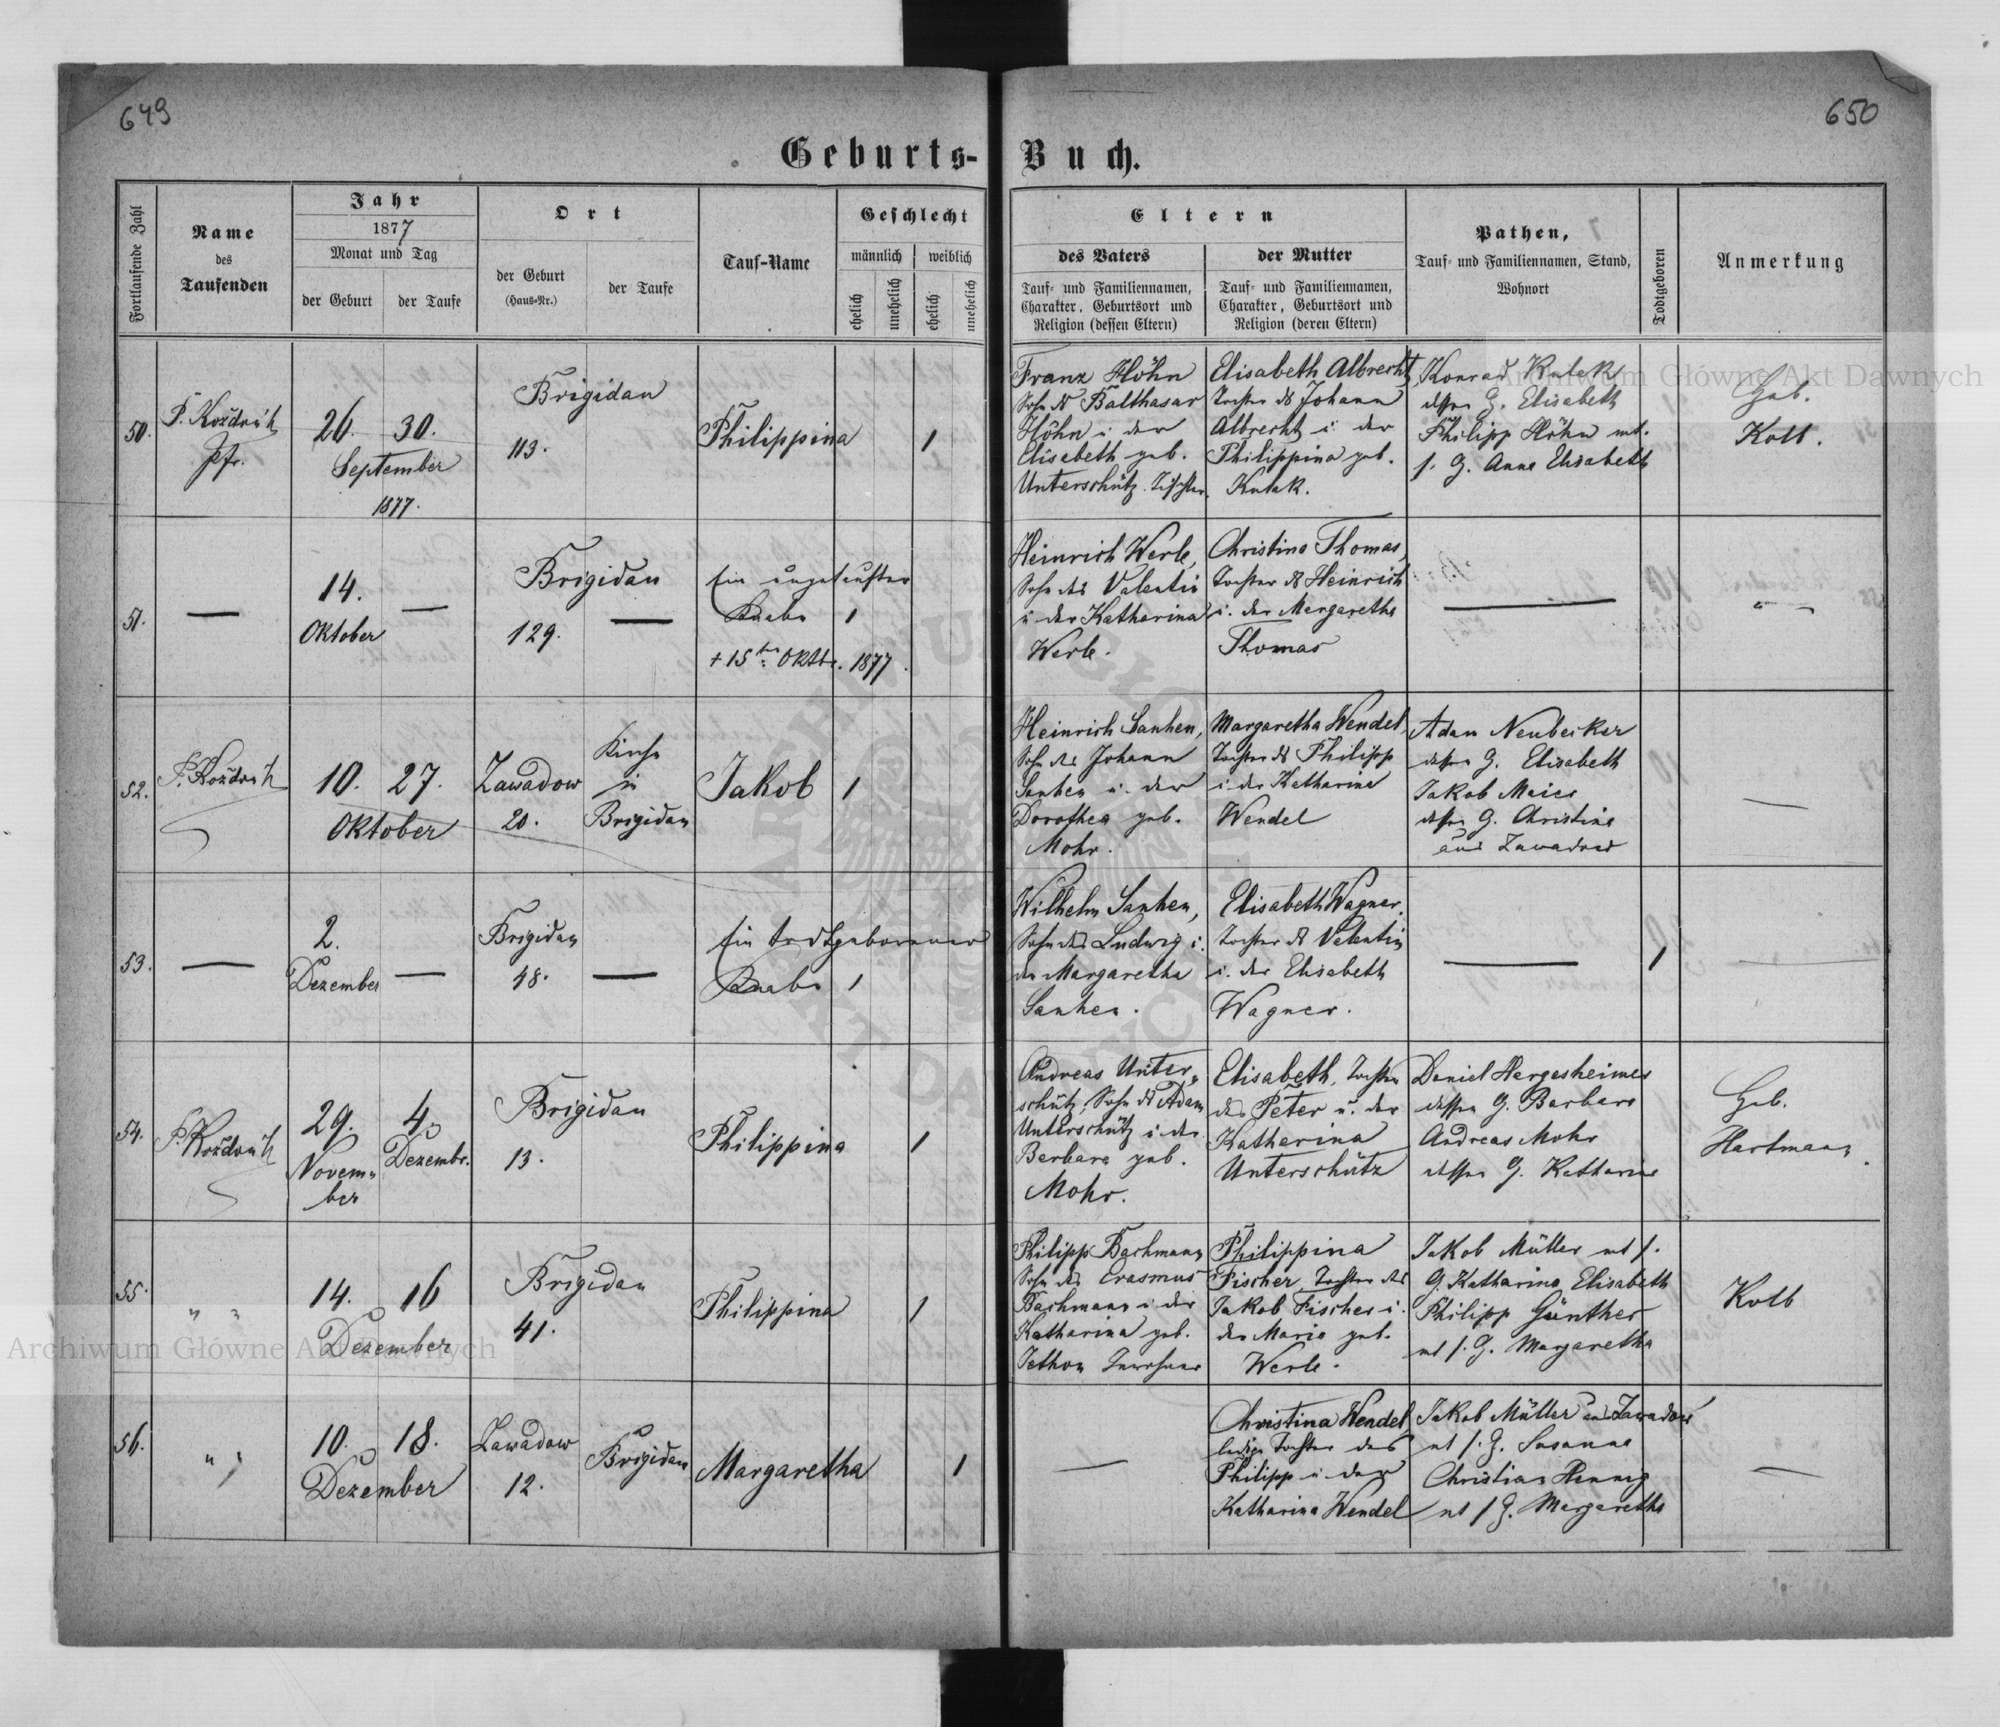 649
650
Geburts-Buch.
Fortlaufende Zahl
Name
des
Taufenden
Jahr
1877
Monat und Tag
der Geburt
der Taufe
Ort
der Geburt
(Haus-Nr.)
der Taufe
Tauf-Name
Geschlecht
männlich
weiblich
ehelich
unehelich
ehelich
unehelich
Eltern
des Vaters
Tauf- und Familiennamen,
Charakter, Geburtsort und
Religion (dessen Eltern)
der Mutter
Tauf- und Familiennamen,
Charakter, Geburtsort und
Religion (deren Eltern)
Pathen,
Tauf- und Familiennamen, Stand,
Wohnort
Todtgeboren
Anmerkung
50.
Pfr.
26. 30.
September
1877.
Brigidau
113.
Philippina
1
Franz Höhn
Sohn ds Balthasar
Höhn u. der
Elisabeth geb.
Unterschütz
Elisabeth Albrecht
Tochter ds Johann
Albrecht u. der
Philippina geb.
Kulak.
Konrad Kulak
dessen G. Elisabeth
Philipp Höhn mt.
s. G. Anna Elisabeth
Heb.
Kolb.
51.
—
14.
Oktober
—
Brigidau
129.
—
Ein ungetaufter
Knabe 1
+ 15ten Oktbr. 1877.
Heinrich Werle,
Sohn des Valentin
u der Katharina
Werle.
Christina Thomas,
Tochter ds Heinrich
u. der Margaretha
Thomas
—
52.
10. 27.
Oktober
Zawadow
20.
Kirche
in
Brigidau
Jakob
1
Heinrich Sauhen,
Sohn des Johann
Sauhen u. der
Dorothea geb.
Mohr.
Margaretha Wendel,
Tochter ds Philipp
u der Katharina
Wendel
Adam Neubecker
dessen G. Elisabeth
Jakob Meier
dessen G. Christine
aus Zawadow
—
53.
—
2.
Dezember
—
Brigidau
48.
—
Ein todtgeborener
Knabe 1
Wilhelm Sauhen,
Sohn des Ludwig u.
der Margaretha
Sauhen.
Elisabeth Wagner,
Tochter ds Valentin
u. der Elisabeth
Wagner.
—
1
—
54.
29.
Novem-
ber
4.
Dezembr.
Brigidau
13.
Philippina
1
Andreas Unter-
schütz, Sohn ds Adam
Unterschütz u der
Barbara geb.
Mohr.
Elisabeth, Tochter
des Peter u. der
Katharina
Unterschütz
Daniel Hergesheimer
dessen G. Barbara
Andreas Mohr
dessen G. Katharina
Heb.
Hartmann.
55.
" "
14. 16
Dezember
Brigidau
41.
Philippina
1
Philipp Bachmann
Sohn des Erasmus
Bachmann u der
Katharina geb.
Philippina
Fischer, Tochter des
Jakob Fischer u.
der Maria geb.
Werle.
Jakob Müller mt s.
G. Katharina Elisabeth
Philipp Günther
mt s. G. Margaretha
Kolb
56.
" "
10. 18.
Dezember
Zawadow
12.
Brigidau
Margaretha
1
—
Christina Wendel
ledige Tochter des
Philipp u der
Katharina Wendel
Jakob Müller aus Zawadow
mt s. G. Susanna
Christian Hennig
mt s G. Margaretha
—
Archiwum Główne Akt Dawnych
Archiwum Główne Akt Dawnych